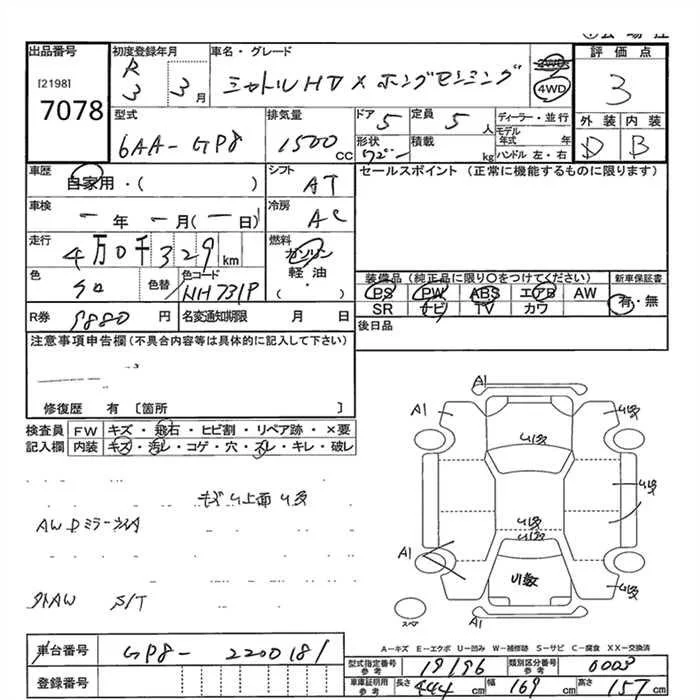 出品番号 初度登録年月 車名・グレード 2WD 4WD 評価点
[2198]
7078
R
3 3月 シャトルHV X ホンダセンシング 3
型式 排気量 ドア 5 定員 5人 ディーラー・並行 外装 内装
6AA-GP8 1500cc 形状 ワゴン 積載 kg モデル年式 年 D B
ハンドル 左・右
車歴 シフト セールスポイント (正常に機能するものに限ります)
自家用・( ) AT
車検 冷房
一年一月(一日) AC
走行 燃料
4万0千329km ガソリン
軽油
・( )
色 色替 色コード
クロ NH731P
装備品 (純正品に限り○をつけてください) 新車保証書
PS PW ABS エアB AW 有・無
SR ナビ TV カワ
R券 9880円 名変通知期限 月 日 後日品
注意事項申告欄 (不具合内容等は具体的に記入して下さい)
修復歴 有 〔箇所 〕
検査員 FW キズ・飛石・ヒビ割・リペア跡・×要
記入欄 内装 キズ・汚レ・コゲ・穴・スレ・キレ・破レ
上面
AW Dミラー
外AW S/T
A1 A1
A1
小数
スペ
A1
A-キズ E-エクボ U-凹み W-補修跡 S-サビ C-腐食 XX-交換済
車台番号 GP8-2200181
型式指定番号 参考 19196 類別区分番号 参考 0003
登録番号 車庫証明用 参考 長さ 444cm 幅 169cm 高さ 157cm